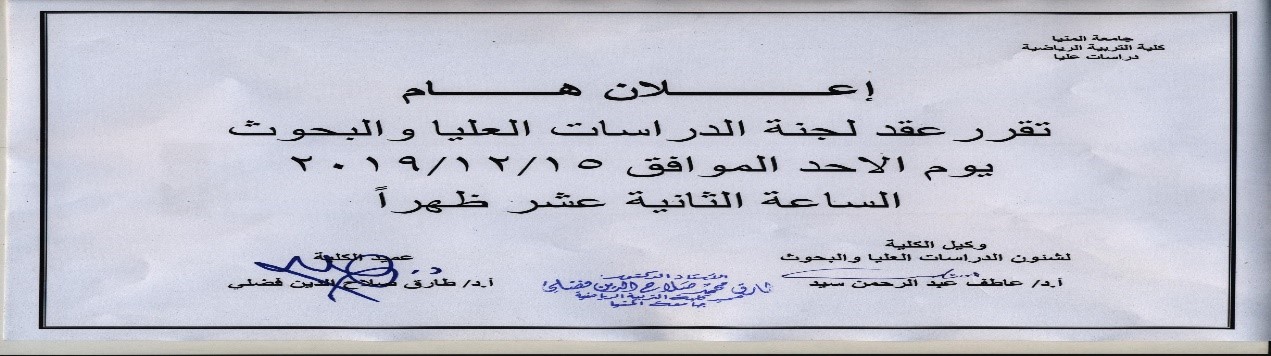 جامعة المنيا
كلية التربية الرياضية
دراسات عليا
إعـــــــلان هـــــام
تقرر عقد لجنة الدراسات العليا والبحوث
يوم الاحد الموافق ٢٠١٩/١٢/١٥
الساعة الثانية عشر ظهراً
وكيل الكلية
لشئون الدراسات العليا والبحوث
أ.د/ عاطف عبد الرحمن سيد
عميد الكلية
أ.د/ طارق صلاح الدين فضلي
الأستاذ الدكتور
طارق محمد صلاح الدين فضلي
عميد كلية التربية الرياضية
جامعة المنيا